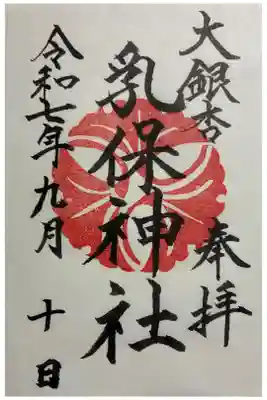 大銀杏 奉拝
乳保神社
令和七年九月 十日